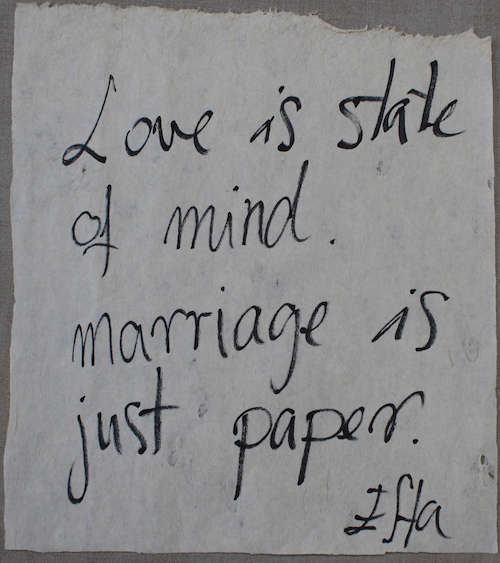 Love is state
of mind.
marriage is
just paper.